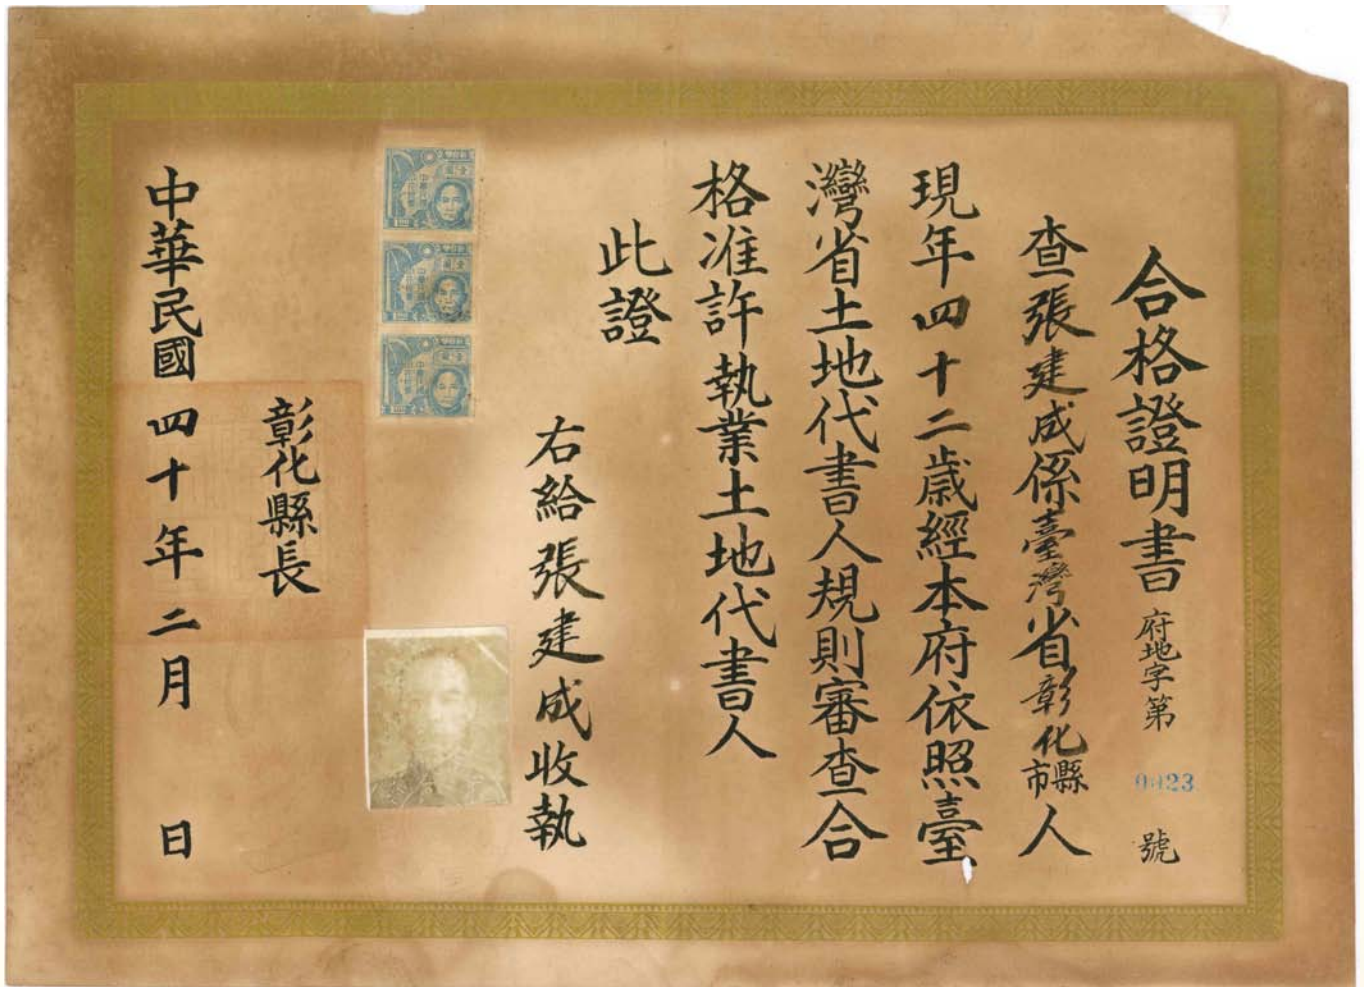 合格證明書 府地字第 0023 號
查張建成係臺灣省彰化縣市人
現年四十二歲經本府依照臺
灣省土地代書人規則審查合
格准許執業土地代書人
此證
右給張建成收執
彰化縣長
中華民國四十年二月 日